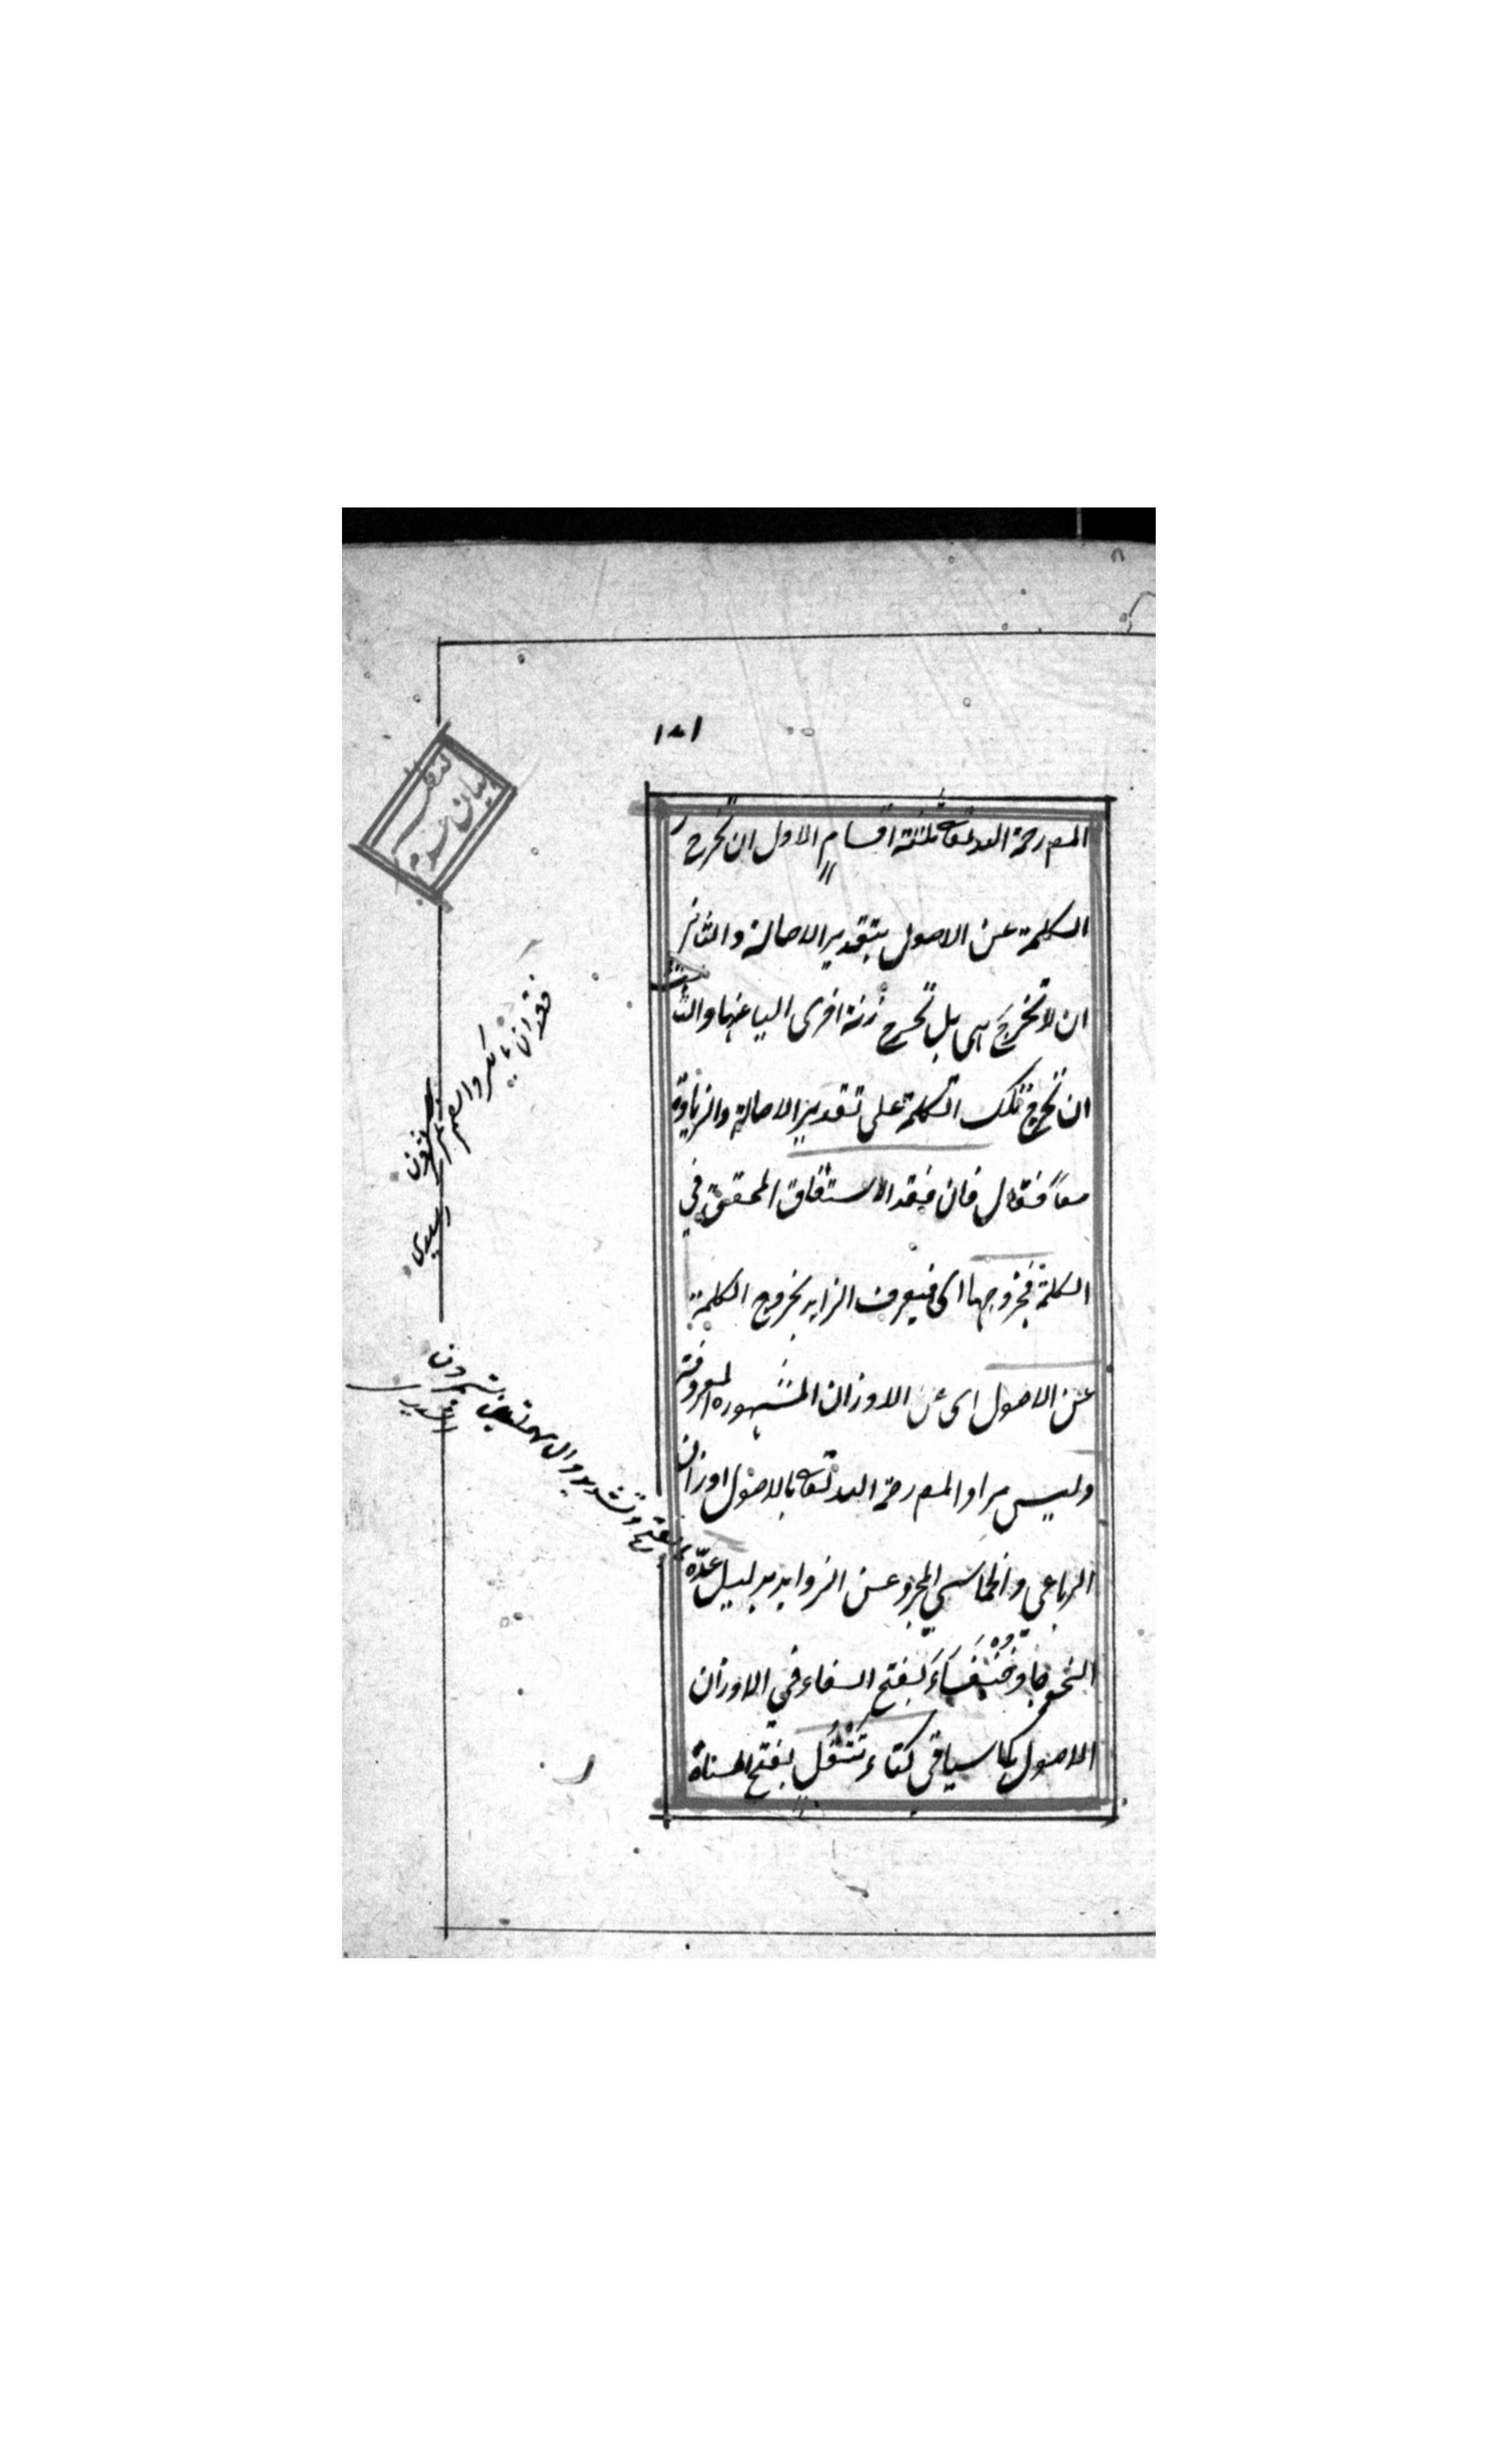 المص رحمة الله تعالى ثلثة اقسام الاول ان تخرج
الكلمة عن الاصول بتقدير الاصالة والثاني
ان لا تخرج هي بل تخرج زنة اخرى اليها عنها والثالث
ان تخرج تلك الكلمة على تقدير الاصالة والزيادة
معاً فقال فان فقد الاشتقاق المحقق في
الكلمة فبخروجها اى فيعرف الزايد بخروج الكلمة
عن الاصول اى عن الاوزان المشهورة المعروفة
وليس مراد المص رحمة الله تعالى بالاصول اوزان
الرباعي والخماسي المجرد عن الزوايد بدليل عدّه
النحو جا وخُنْفَسَاءَ بفتح الفاء في الاوزان
الاصول كما سياتى كتاء تَتْفُل بفتح المثناة
فقدان بالكسر والضم
بفتح وتشديد دال مهملتين